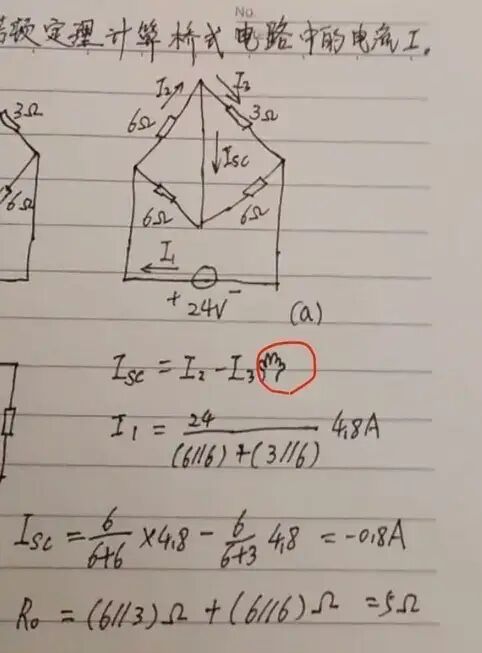 No.
诺顿定理计算桥式电路中的电流I。
I₂ I₃
3Ω 6Ω 3Ω
Isc
6Ω 6Ω 6Ω
I₁
+ 24V - (a)
Isc = I₂ - I₃
I₁ = 24 / (6//6) + (3//6) 4.8A
Isc = 6/6+6 ×4.8 - 6/6+3 4.8 = -0.8A
R₀ = (6//3)Ω + (6//6)Ω = 5Ω